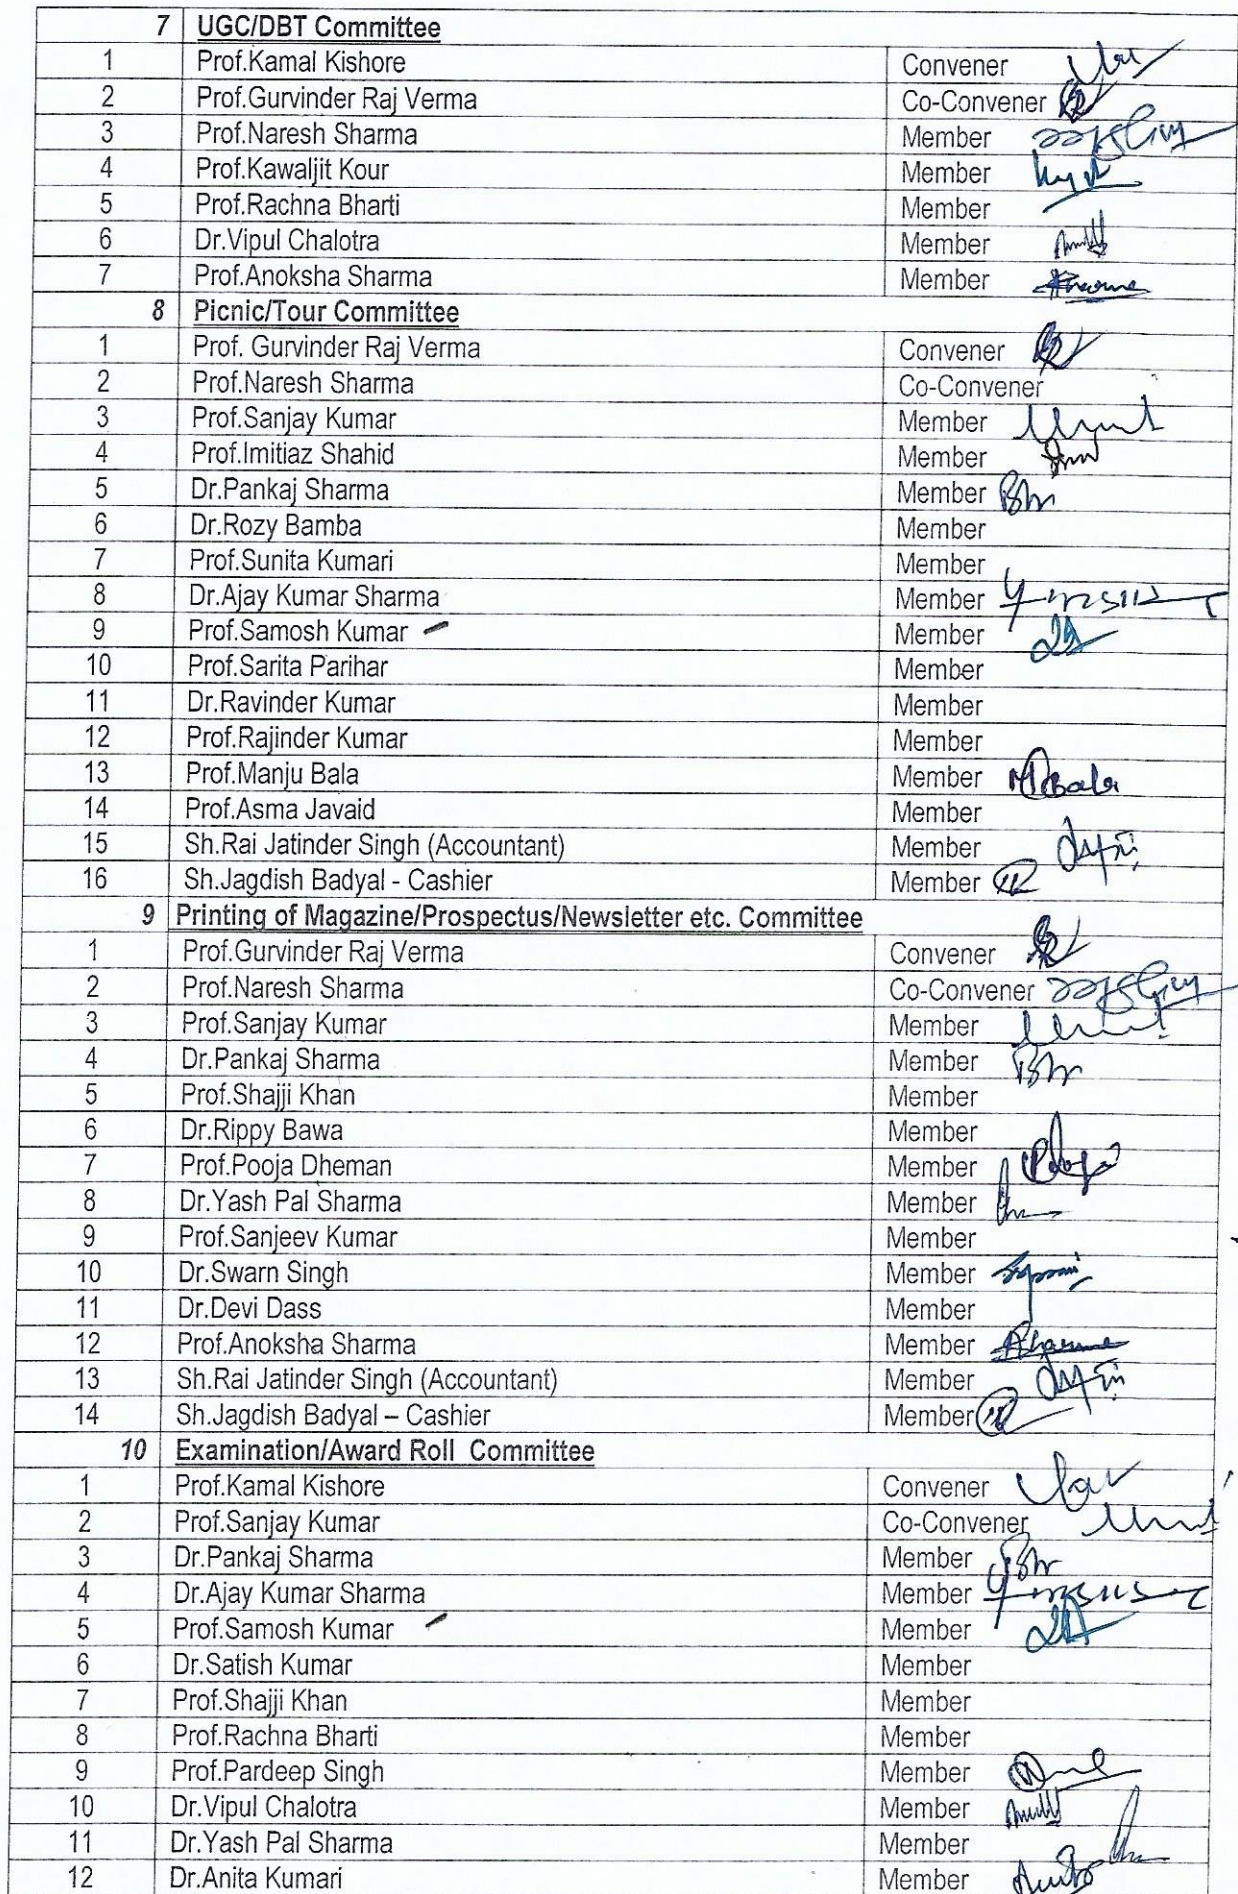 7 UGC/DBT Committee
1 Prof.Kamal Kishore Convener
2 Prof.Gurvinder Raj Verma Co-Convener
3 Prof.Naresh Sharma Member
4 Prof.Kawaljit Kour Member
5 Prof.Rachna Bharti Member
6 Dr.Vipul Chalotra Member
7 Prof.Anoksha Sharma Member
8 Picnic/Tour Committee
1 Prof. Gurvinder Raj Verma Convener
2 Prof.Naresh Sharma Co-Convener
3 Prof.Sanjay Kumar Member
4 Prof.Imitiaz Shahid Member
5 Dr.Pankaj Sharma Member
6 Dr.Rozy Bamba Member
7 Prof.Sunita Kumari Member
8 Dr.Ajay Kumar Sharma Member
9 Prof.Samosh Kumar Member
10 Prof.Sarita Parihar Member
11 Dr.Ravinder Kumar Member
12 Prof.Rajinder Kumar Member
13 Prof.Manju Bala Member
14 Prof.Asma Javaid Member
15 Sh.Rai Jatinder Singh (Accountant) Member
16 Sh.Jagdish Badyal - Cashier Member
9 Printing of Magazine/Prospectus/Newsletter etc. Committee
1 Prof.Gurvinder Raj Verma Convener
2 Prof.Naresh Sharma Co-Convener
3 Prof.Sanjay Kumar Member
4 Dr.Pankaj Sharma Member
5 Prof.Shajji Khan Member
6 Dr.Rippy Bawa Member
7 Prof.Pooja Dheman Member
8 Dr.Yash Pal Sharma Member
9 Prof.Sanjeev Kumar Member
10 Dr.Swarn Singh Member
11 Dr.Devi Dass Member
12 Prof.Anoksha Sharma Member
13 Sh.Rai Jatinder Singh (Accountant) Member
14 Sh.Jagdish Badyal – Cashier Member
10 Examination/Award Roll Committee
1 Prof.Kamal Kishore Convener
2 Prof.Sanjay Kumar Co-Convener
3 Dr.Pankaj Sharma Member
4 Dr.Ajay Kumar Sharma Member
5 Prof.Samosh Kumar Member
6 Dr.Satish Kumar Member
7 Prof.Shajji Khan Member
8 Prof.Rachna Bharti Member
9 Prof.Pardeep Singh Member
10 Dr.Vipul Chalotra Member
11 Dr.Yash Pal Sharma Member
12 Dr.Anita Kumari Member